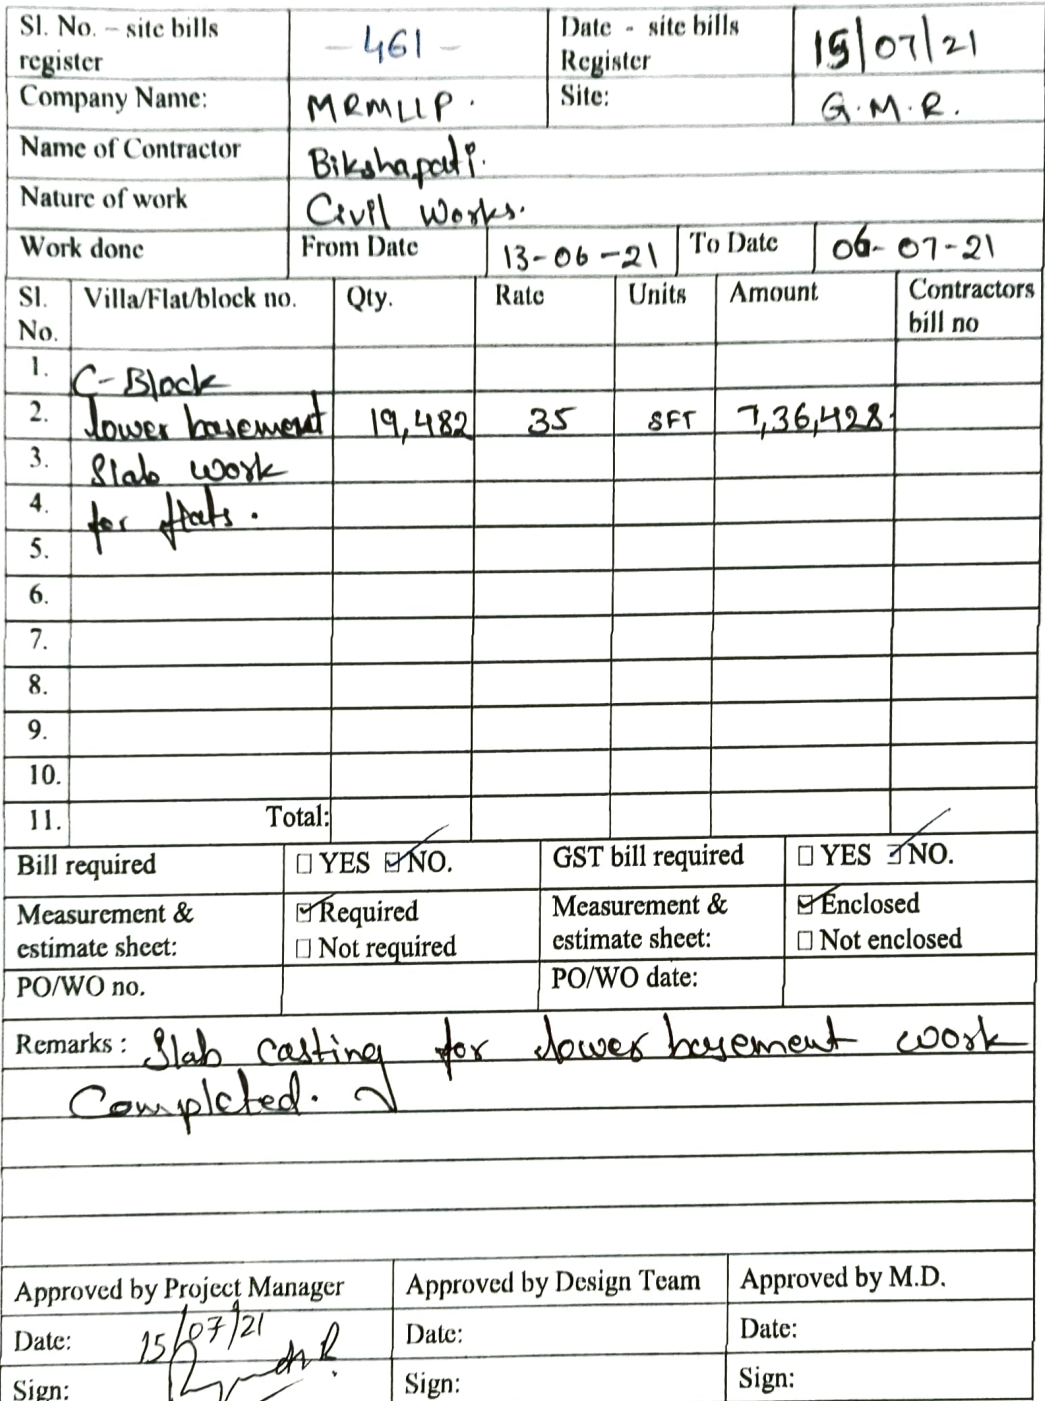 Sl. No. – site bills register - 461 - Date - site bills Register 15/07/21
Company Name: MRMLLP. Site: G.M.R.
Name of Contractor Bikshapati.
Nature of work Civil Works.
Work done From Date 13-06-21 To Date 06-07-21
Sl. No. Villa/Flat/block no. Qty. Rate Units Amount Contractors bill no
1. C-Block
2. lower basement 19,482 35 SFT 7,36,428
3. Slab work
4. for flats.
5.
6.
7.
8.
9.
10.
11. Total:
Bill required ☐ YES ☑ NO. GST bill required ☐ YES ☑ NO.
Measurement & estimate sheet: ☑ Required ☐ Not required Measurement & estimate sheet: ☑ Enclosed ☐ Not enclosed
PO/WO no. PO/WO date:
Remarks : Slab casting for lower basement work
Completed.
Approved by Project Manager Approved by Design Team Approved by M.D.
Date: 15/07/21 Date: Date:
Sign: Sign: Sign: